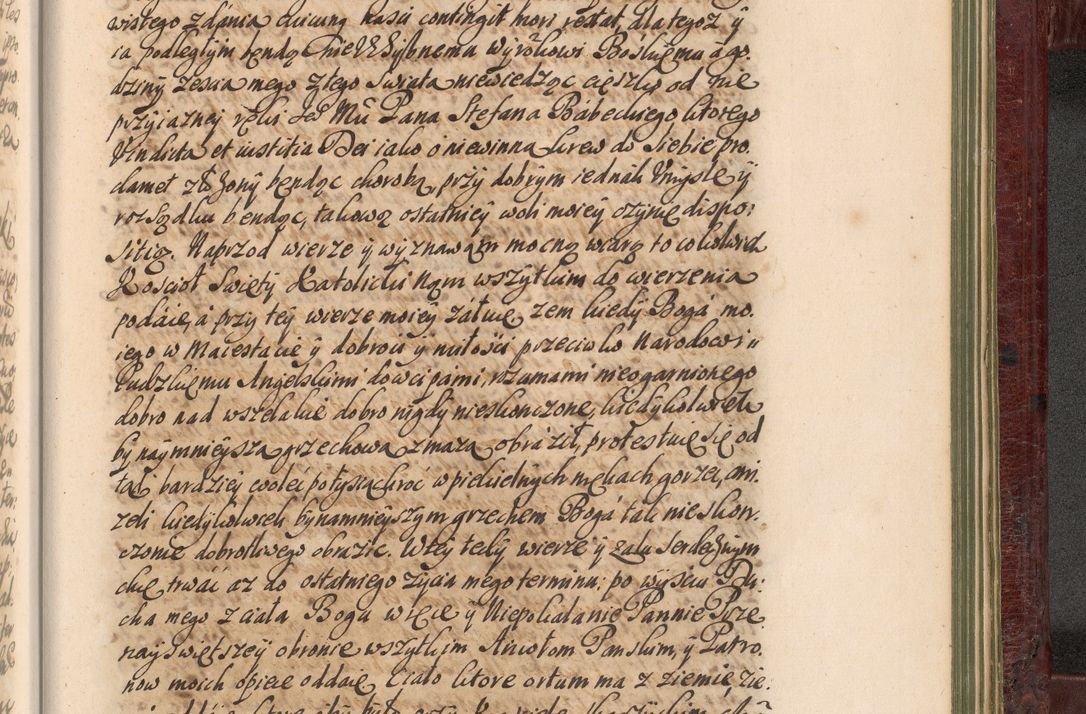 wistego zdania cuicunq nasci contingit mori restat, dla tegoż y
ia podległym bendąc nie Wybnemu wyrokowi Boskiemu a go.
dziny zescia mego z tego swiata niewiedząc ciężką od nie
przyiazney ręki Je° Mći Pana Stefana Bąbeckiego ktorego
Vindicta et iustitia Dei iako o niewinną krew do siebie pro
clamet złożony bendąc chorobą, przy dobrym iednak Umysle y
rozsądku bendąc, takową ostatniey woli moiey czynię dispo:
sitią. Naprzod wierze y wyznawam mocną wiarą to cokolwiek
Kosciół Swięty Katolicki nąm wszytkim do wierzenia
podaie, a przy tey wierze moiey załuię zem kiedy Boga mo.
iego w Maiestacie y dobroci y miłości przeciwko Narodowi
Ludzkiemu Angelskimi dowcipami, rozumami nieogarnionego
dobro nad wszelakie dobro nigdy nieskonczone, kiedykolwiek
by naymnieysza grzechowa zmaza obraził, protestuię się od
tąd bardziey woleć po tysiąckroć w piekielnych mękach gorzeć, ani
zeli kiedykolwiek bynamnieyszym grzechem Boga tak nieskon.
czonie dobrotliwego obrazic. W tey tedy wierze y zalu serdecznym
chcę trwáć az do ostatniego zycia mego terminu: po wyściu Du:
cha mego z ciała Bogu w ręce y Niepokalanie Pannie Prze
nayświętszey obronie wszytkim Aniołom Panskim, y Patro.
now moich opiece oddaię. Ciało ktore ortum ma z ziemie, zie: